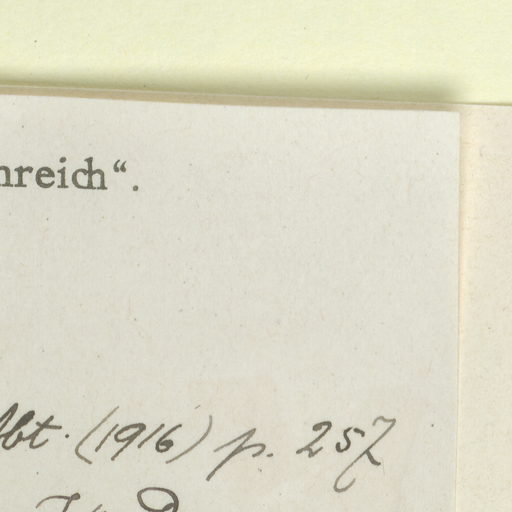 nreich“.
Abt. (1916) p. 257